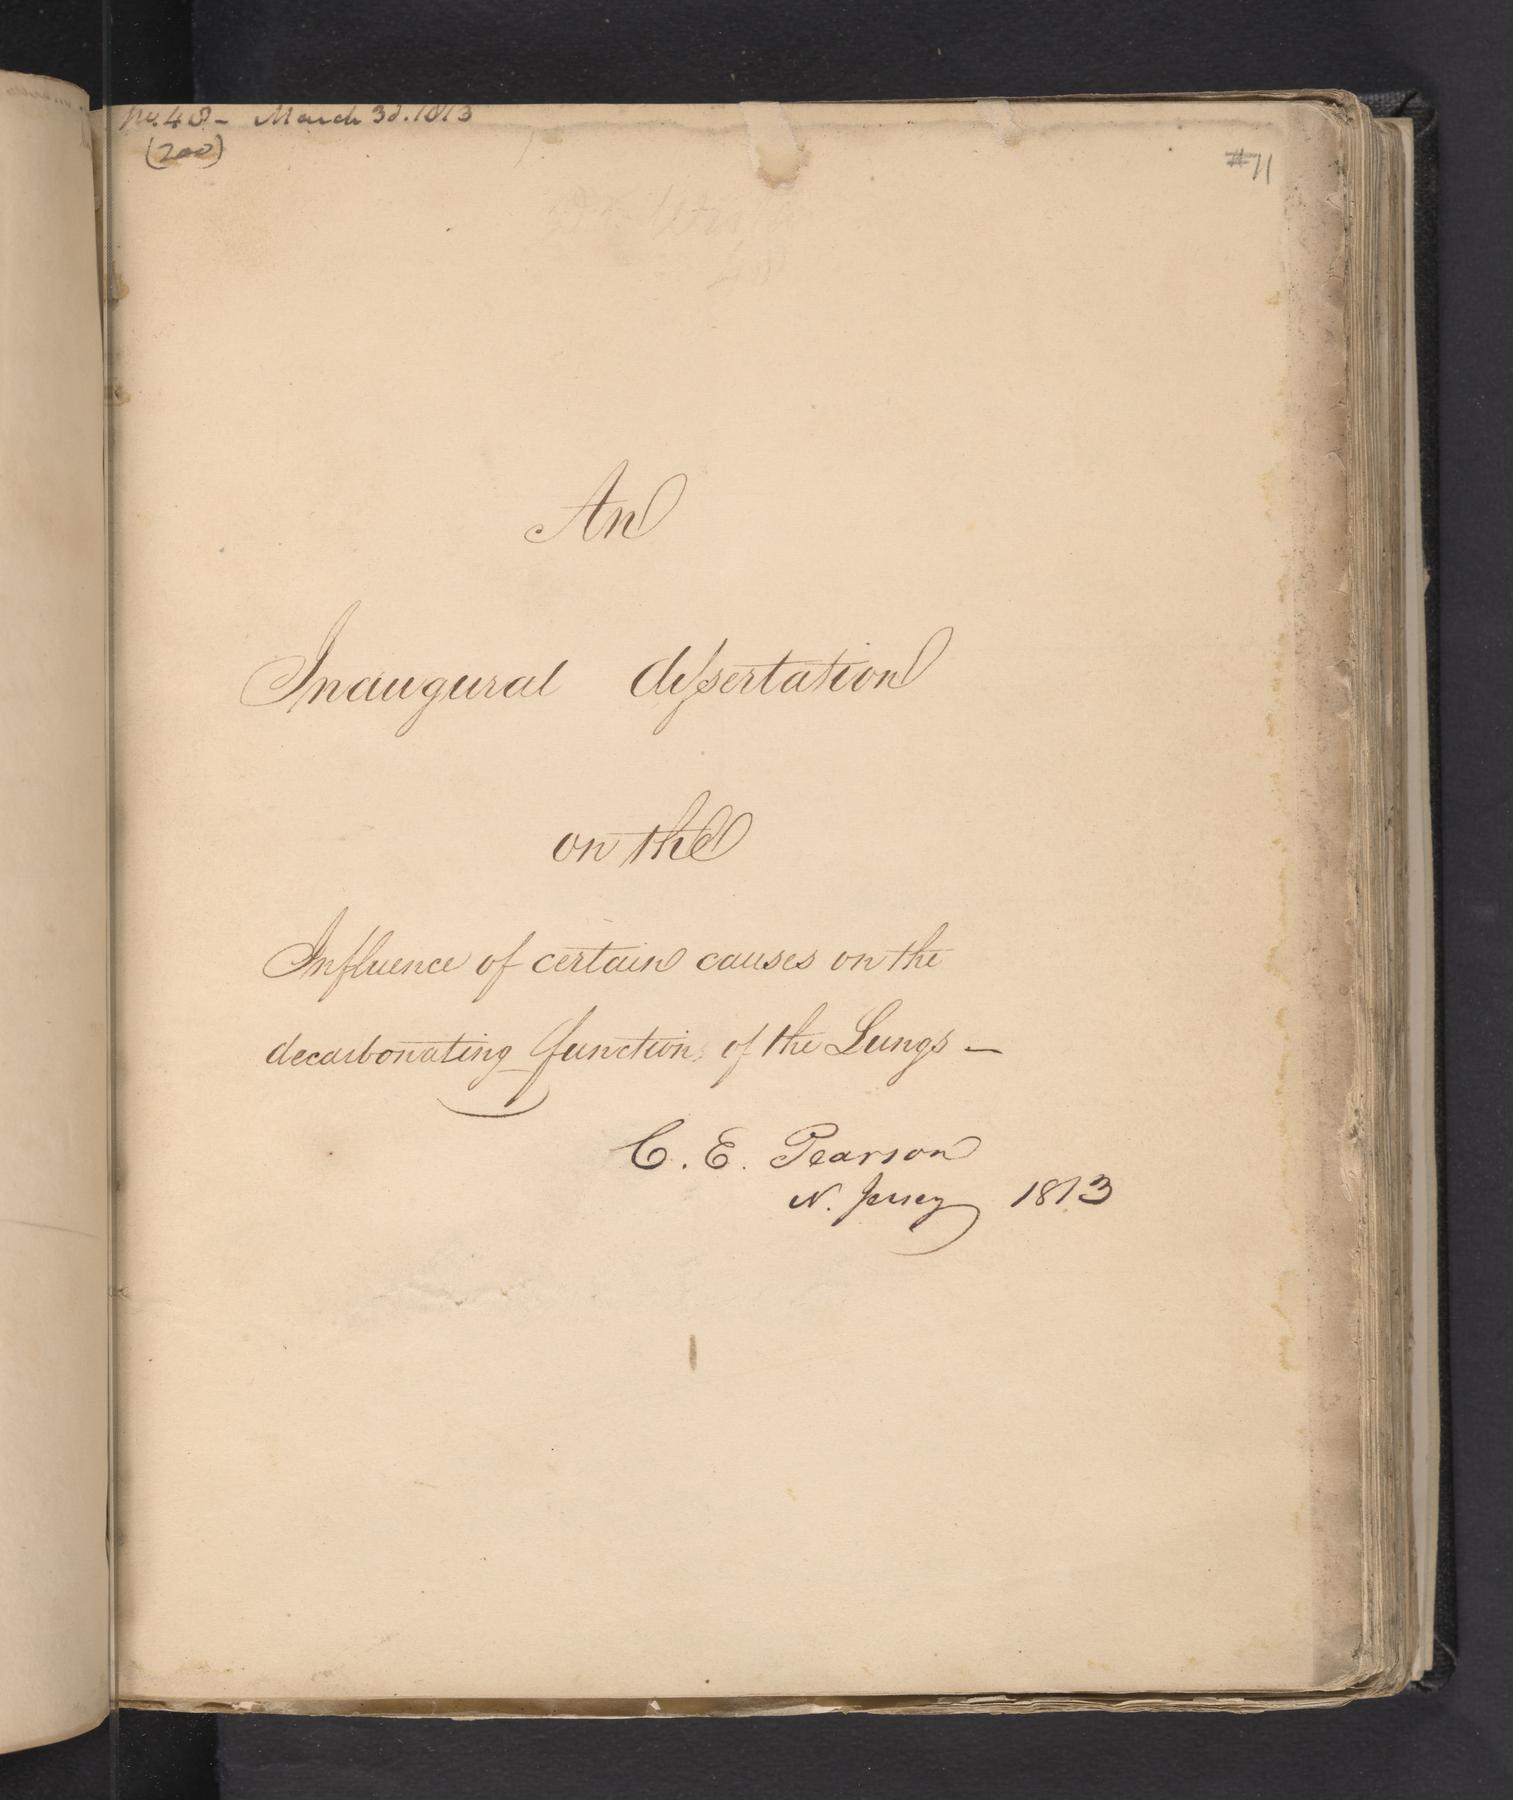 No. 48 - March 3d. 1813
(200)
#11
An
Inaugural dissertation
on the
Influence of certain causes on the
decarbonating functions of the Lungs —
C. E. Pearson
N. Jersey 1813